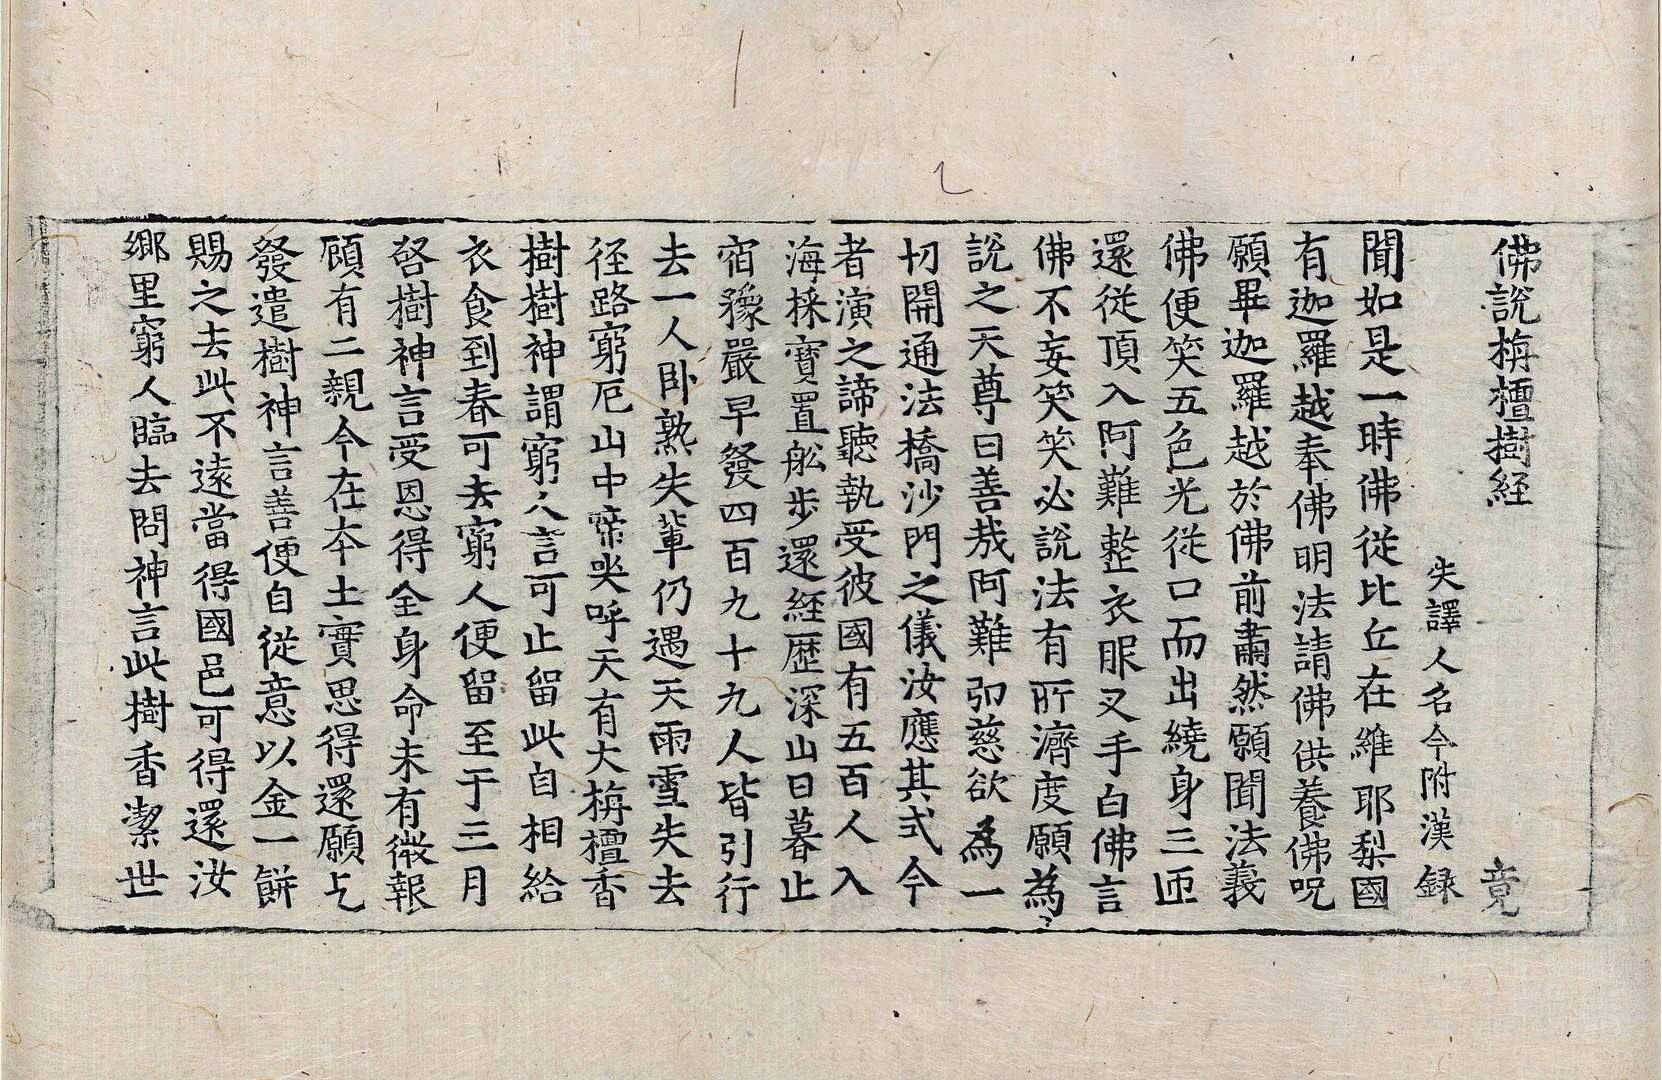 佛說栴檀樹経　竟
失譯人名今附漢録
聞如是一時佛從比丘在維耶梨國
有迦羅越奉佛明法請佛供養佛呪
願畢迦羅越於佛前肅然願聞法義
佛便笑五色光從口而出繞身三匝
還從頂入阿難整衣服叉手白佛言
佛不妄笑笑必說法有所濟度願為
說之天尊曰善哉阿難弘慈欲為一
切開通法橋沙門之儀汝應其式今
者演之諦聽執受彼國有五百人入
海採寶置舩步還経歴深山日暮止
宿豫嚴早發四百九十九人皆引行
去一人臥熟失輩仍遇天雨雪失去
徑路窮厄山中啼哭呼天有大栴檀香
樹樹神謂窮人言可止留此自相給
衣食到春可去窮人便留至于三月
啓樹神言受恩得全身命未有微報
顧有二親今在本土實思得還願乞
發遣樹神言善便自從意以金一餅
賜之去此不遠當得國邑可得還汝
鄉里窮人臨去問神言此樹香潔世